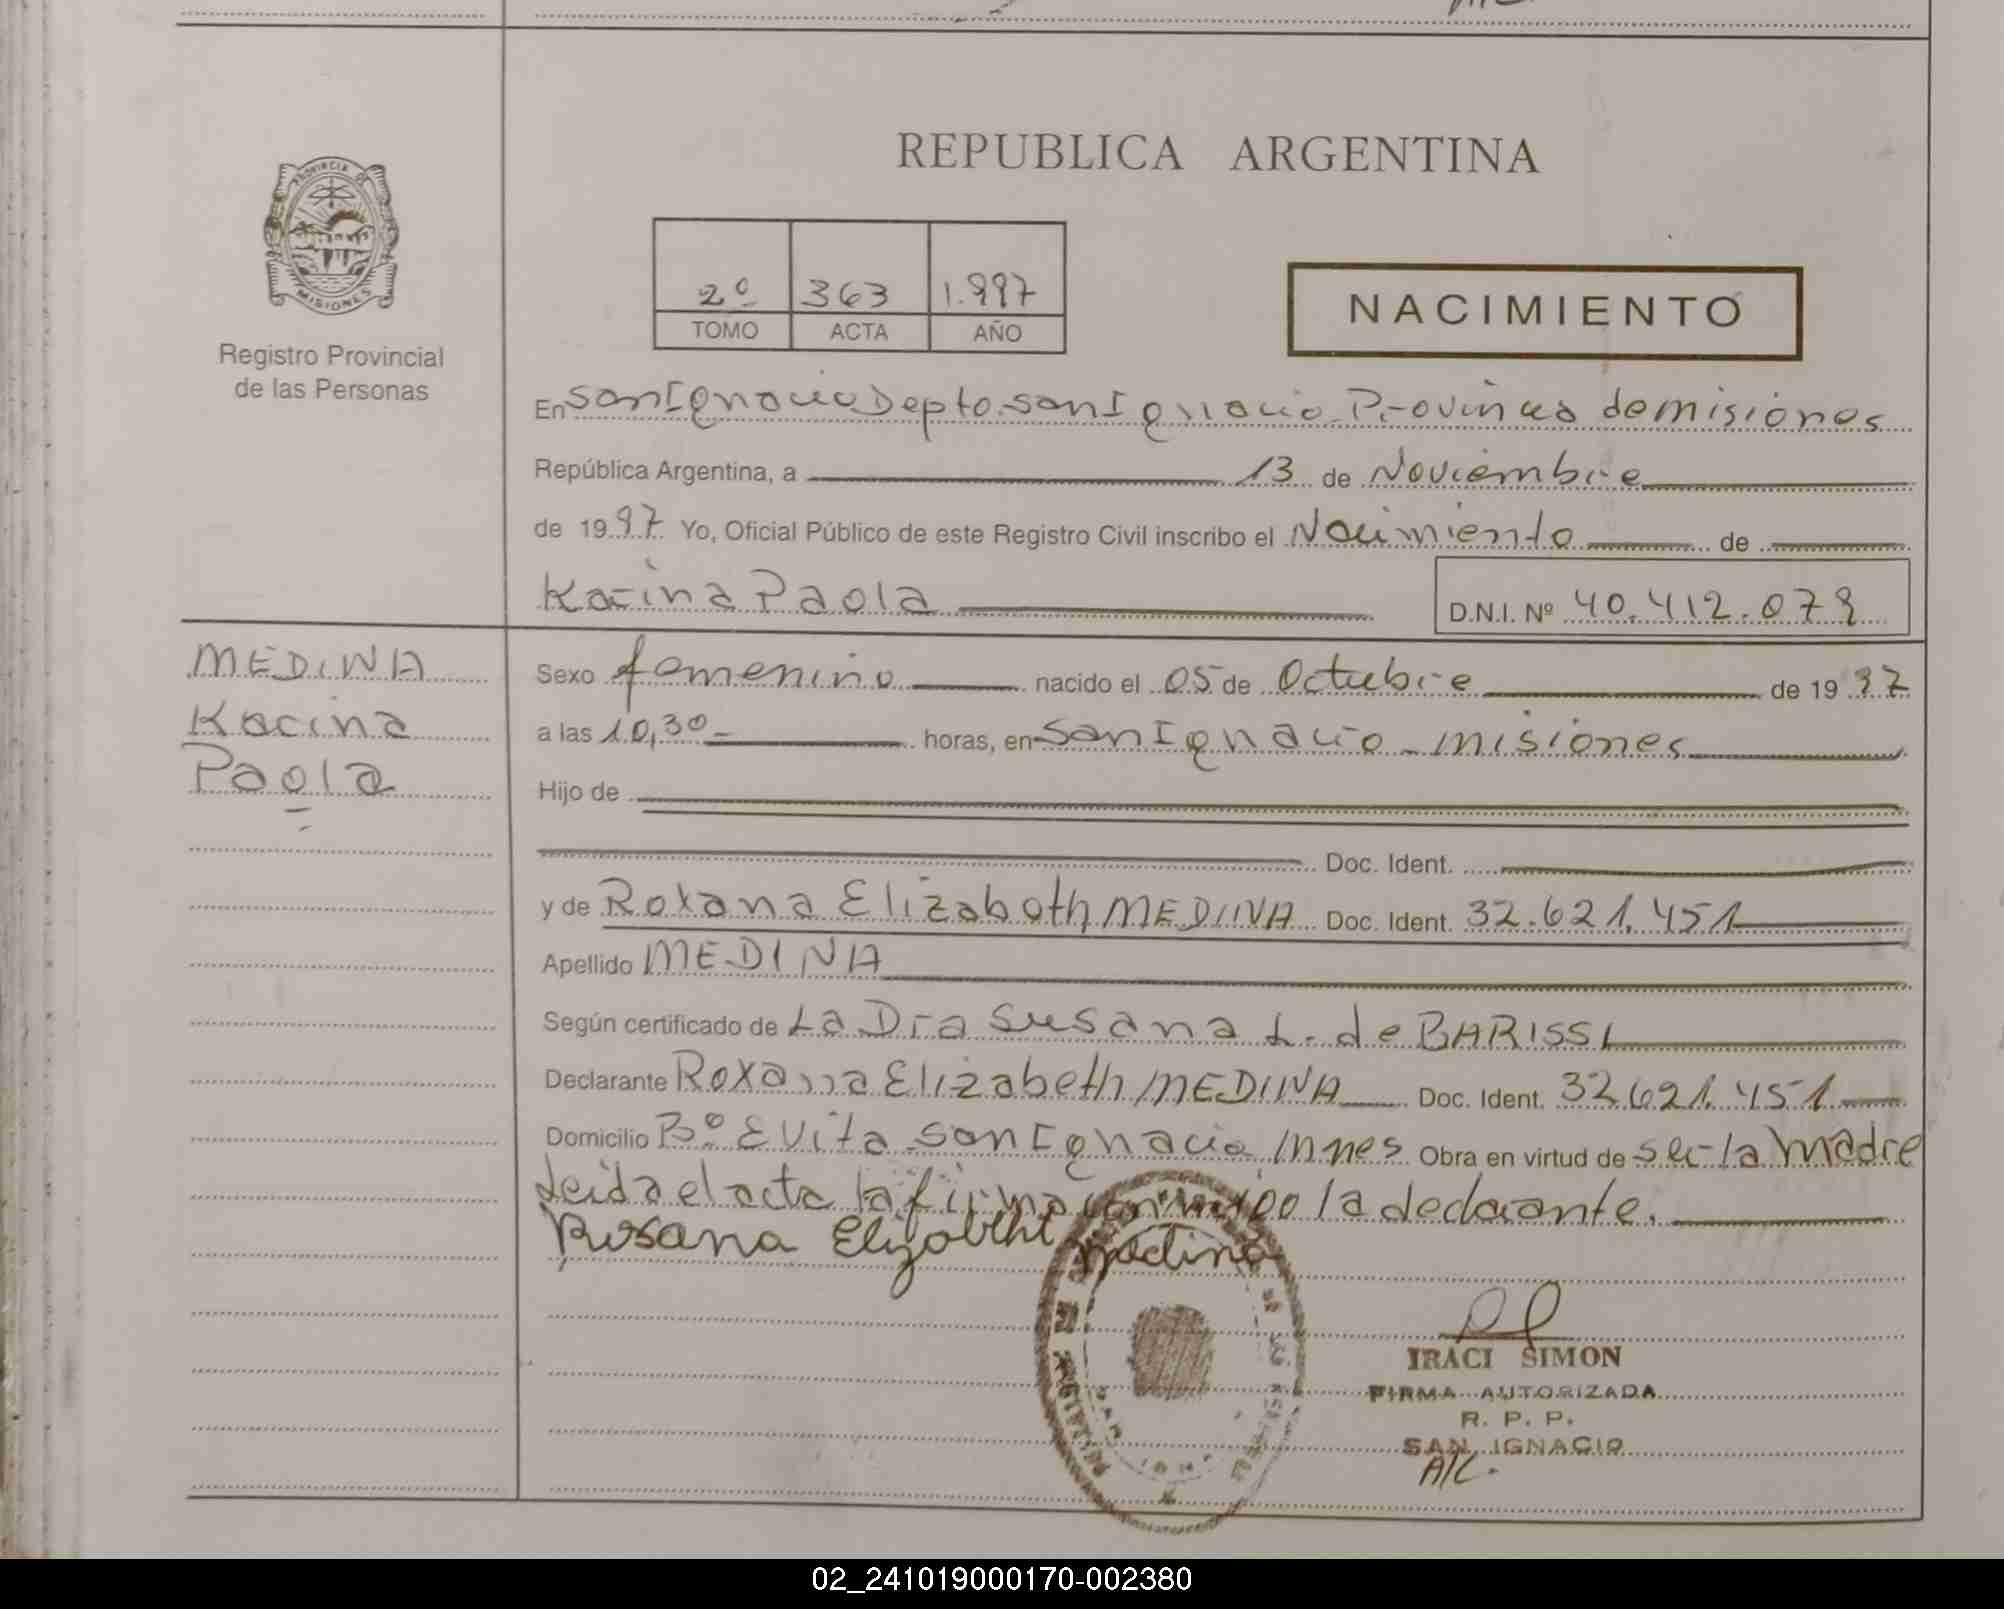 REPUBLICA ARGENTINA
PROVINCIA DE
MISIONES
Registro Provincial
de las Personas
2º 363 1.997
TOMO ACTA AÑO
NACIMIENTO
En San Ignacio Depto. San Ignacio Provincia de misiones
República Argentina, a 13 de Noviembre
de 1997 Yo, Oficial Público de este Registro Civil inscribo el Nacimiento de
Karina Paola D.N.I. Nº 40.412.079
MEDINA
Karina
Paola
Sexo femenino nacido el 05 de Octubre de 1997
a las 10,30 horas, en San Ignacio - misiones
Hijo de
Doc. Ident.
y de Roxana Elizabeth MEDINA Doc. Ident. 32.621.451
Apellido MEDINA
Según certificado de La Dra Susana L. de BARISSI
Declarante Roxana Elizabeth MEDINA Doc. Ident. 32.621.451
Domicilio Bº Evita San Ignacio Mnes Obra en virtud de ser la madre
Leida el acta la firma conmigo la declarante.
Rosana Elizabeht medina
IRACI SIMON
FIRMA AUTORIZADA
R. P. P.
SAN IGNACIO
A/C.
02_241019000170-002380